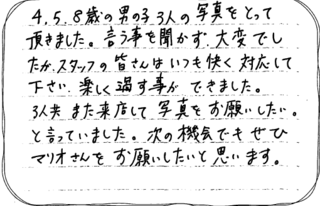 4.5.8歳の男の子3人の写真をとって
頂きました。言う事を聞かず、大変でし
たが、スタッフの皆さんはいつも快く対応して
下さい、楽しく過す事ができました。
3人共また来店して写真をお願いしたい。
と言っていました。次の機会でもぜひ
マリオさんをお願いしたいと思います。